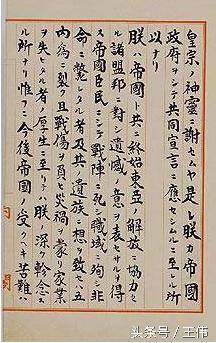 皇宗ノ神靈ニ謝セムヤ是レ朕カ帝國
政府ヲシテ共同宣言ニ應セシムルニ至レル所
以ナリ
朕ハ帝國ト共ニ終始東亞ノ解放ニ協力セ
ル諸盟邦ニ對シ遺憾ノ意ヲ表セサルヲ得
ス帝國臣民ニシテ戰陣ニ死シ職域ニ殉シ非
命ニ斃レタル者及其ノ遺族ニ想ヲ致セハ五
内爲ニ裂ク且戰傷ヲ負ヒ災禍ヲ蒙リ家業
ヲ失ヒタル者ノ厚生ニ至リテハ朕ノ深ク軫念ス
ル所ナリ惟フニ今後帝國ノ受クヘキ苦難ハ
内閣
头条号/王伟